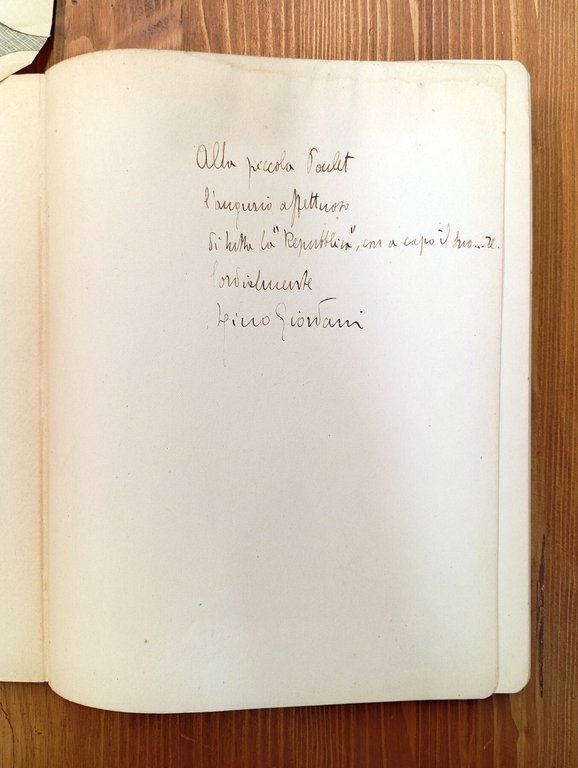 Alla piccola Paulet
l'augurio affettuoso
di tutta la "Repubblica", con a capo il suo...re.
Cordialmente
Gino Giordani